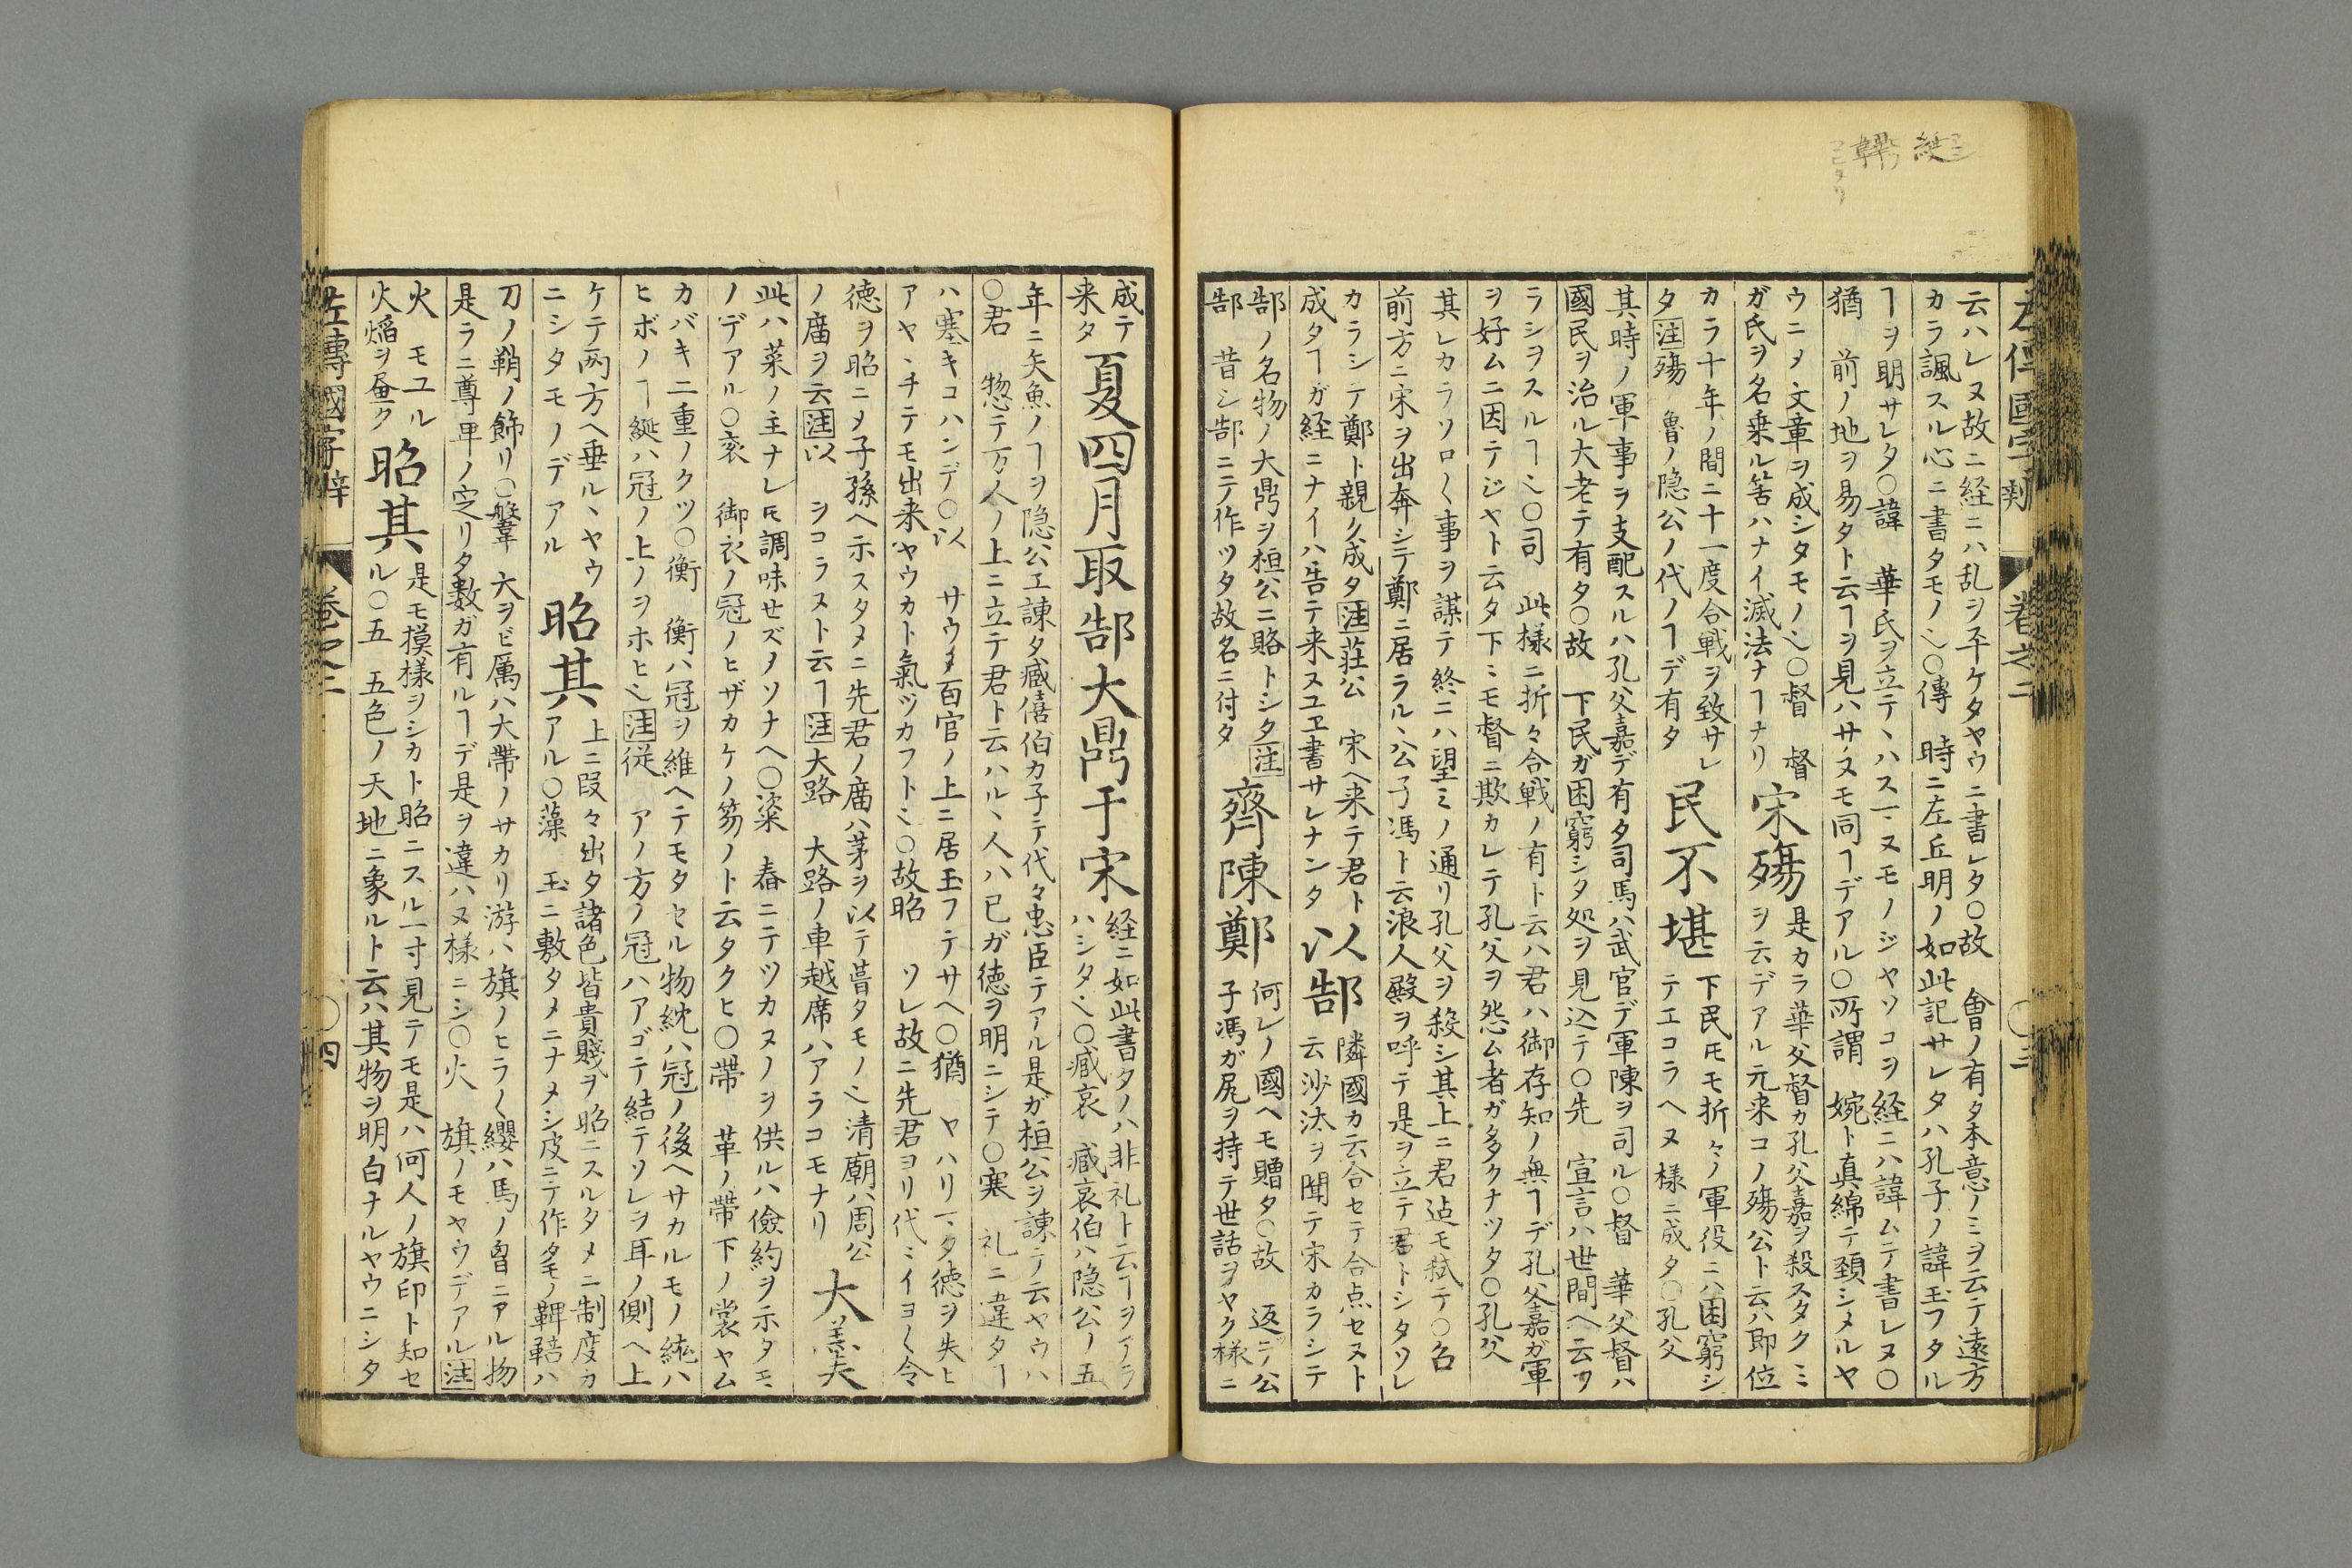 紞
韠
云ハレヌ故ニ経ニハ乱ヲ平ケタヤウニ書レタ〇故 會ノ有タ本意ノミヲ云テ遠方
カラ諷スル心ニ書タモノ也〇傳 時ニ左丘明ノ如此記サレタハ孔子ノ諱玉フタル
ヿヲ明サレタ〇諱 華氏ヲ立テヽハスマヌモノジヤソコヲ経ニハ諱ムテ書レヌ〇
猶 前ノ地ヲ易タト云ヿヲ見ハサヌモ同ヿデアル〇所謂 婉ト真綿テ頚シメルヤ
ウニ〆文章ヲ成シタモノ也〇督 督
ガ氏ヲ名乗ル筈ハナイ滅法ナヿナリ
宋殤
是カラ華父督カ孔父嘉ヲ殺スタクミ
ヲ云デアル元来コノ殤公ト云ハ即位
カラ十年ノ間ニ十一度合戦ヲ致サレ
タ注殤 魯ノ隠公ノ代ノヿデ有タ
民不堪
下民𪜈モ折々ノ軍役ニハ困窮シ
テエコラヘヌ様ニ成タ〇孔父
其時ノ軍事ヲ支配スルハ孔父嘉デ有タ司馬ハ武官デ軍陳ヲ司ル〇督 華父督ハ
國民ヲ治ル大老テ有タ〇故 下民ガ困窮シタ処ヲ見込テ〇先 宣言ハ世間ヘ云ヲ
ラシヲスルヿ也〇司 此様ニ折々合戦ノ有ト云ハ君ハ御存知ノ無ヿデ孔父嘉ガ軍
ヲ好ムニ因テジヤト云タ下ミモ督ニ欺カレテ孔父ヲ怨ム者ガ多クナツタ〇孔父
其レカラソロ〱事ヲ謀テ終ニハ望ミノ通リ孔父ヲ殺シ其上ニ君迠モ弑テ〇召
前方ニ宋ヲ出奔シテ鄭ニ居ラルヽ公子馮ト云浪人殿ヲ呼テ是ヲ立テ君トシタソレ
カラシテ鄭ト親ク成タ注荘公 宋ヘ来テ君ト
成タヿガ経ニナイハ告テ来ヌユヱ書サレナンタ
以郜
隣國カ云合セテ合点セスト
云沙汰ヲ聞テ宋カラシテ
郜ノ名物ノ大鼎ヲ桓公ニ賂トシタ注
郜 昔シ郜ニテ作ツタ故名ニ付タ
齊陳鄭
何レノ國ヘモ贈タ〇故 返テ公
子馮ガ尻ヲ持テ世話ヲヤク様ニ
成テ
来タ
夏四月取郜大鼎于宋
経ニ如此書タノハ非礼ト云ヿヲアラ
ハシタ也〇臧哀 臧哀伯ハ隠公ノ五
年ニ矢魚ノヿヲ隠公エ諫タ臧僖伯カ子テ代々忠臣テアル是ガ桓公ヲ諫テ云ヤウハ
〇君 惣テ万人ノ上ニ立テ君ト云ハルヽ人ハ已ガ徳ヲ明ニシテ〇塞 礼ニ違タヿ
ハ塞キコハンデ〇以 サウ〆百官ノ上ニ居玉フテサヘ〇猶 ヤハリマタ徳ヲ失ヒ
アヤヽチテモ出来ヤウカト氣ヅカフト也〇故昭 ソレ故ニ先君ヨリ代ミイヨ〱令
徳ヲ昭ニ〆子孫ヘ示スタメニ先君ノ廟ハ茅ヲ以テ葺タモノ也清廟ハ周公
ノ廟ヲ云注以 ヲコラヌト云ヿ注大路 大路ノ車越席ハアラコモナリ
大羹
此ハ菜ノ主ナレ𪜈調味セズノソナヘ〇粢 舂ニテツカヌノヲ供ルハ儉約ヲ示タモ
ノデアル〇衮 御衣ノ冠ノヒザカケノ笏ノト云タクヒ〇帶 革ノ帶下ノ裳ヤム
カバキ二重ノクツ〇衡 衡ハ冠ヲ維ヘテモタセル物紞ハ冠ノ後ヘサカルモノ紘ハ
ヒボノヿ綖ハ冠ノ上ノヲホヒ也注従 アノ方ノ冠ハアゴテ結テソレヲ耳ノ側ヘ上
ケテ両方ヘ垂ルヽヤウ
ニシタモノデアル
昭其
上ニ叚々出タ諸色皆貴賤ヲ昭ニスルタメニ制度カ
アル〇藻 玉ニ敷タメニナメシ皮ニテ作タモノ鞞鞛ハ
刀ノ鞘ノ飾リ〇鞶 大ヲビ厲ハ大帶ノサカリ游ハ旗ノヒラ〱纓ハ馬ノ胷ニアル物
是ラニ尊卑ノ定リタ數ガ有ルヿデ是ヲ違ハヌ様ニシ〇火 旗ノモヤウデアル注
火 モユル
火焔ヲ畫ク
昭其
是モ摸様ヲシカト昭ニスル一寸見テモ是ハ何人ノ旗印ト知セ
ル〇五 五色ノ天地ニ象ルト云ハ其物ヲ明白ナルヤウニシタ
左傳國字辨 巻之二 〇四